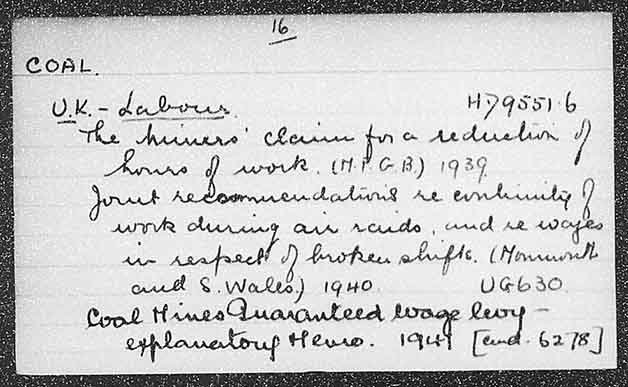 16
COAL.
U.K. - Labour.
H79551.6
The miners' claim for a reduction of
hours of work. (M.F.G.B.) 1939
Joint recommendations re continuity of
work during air raids, and re wages
in respect of broken shifts. (Monmouth
and S. Wales) 1940. UG630.
Coal Mines Guaranteed wage levy -
explanatory Memo. 1941 [cmd. 6278]